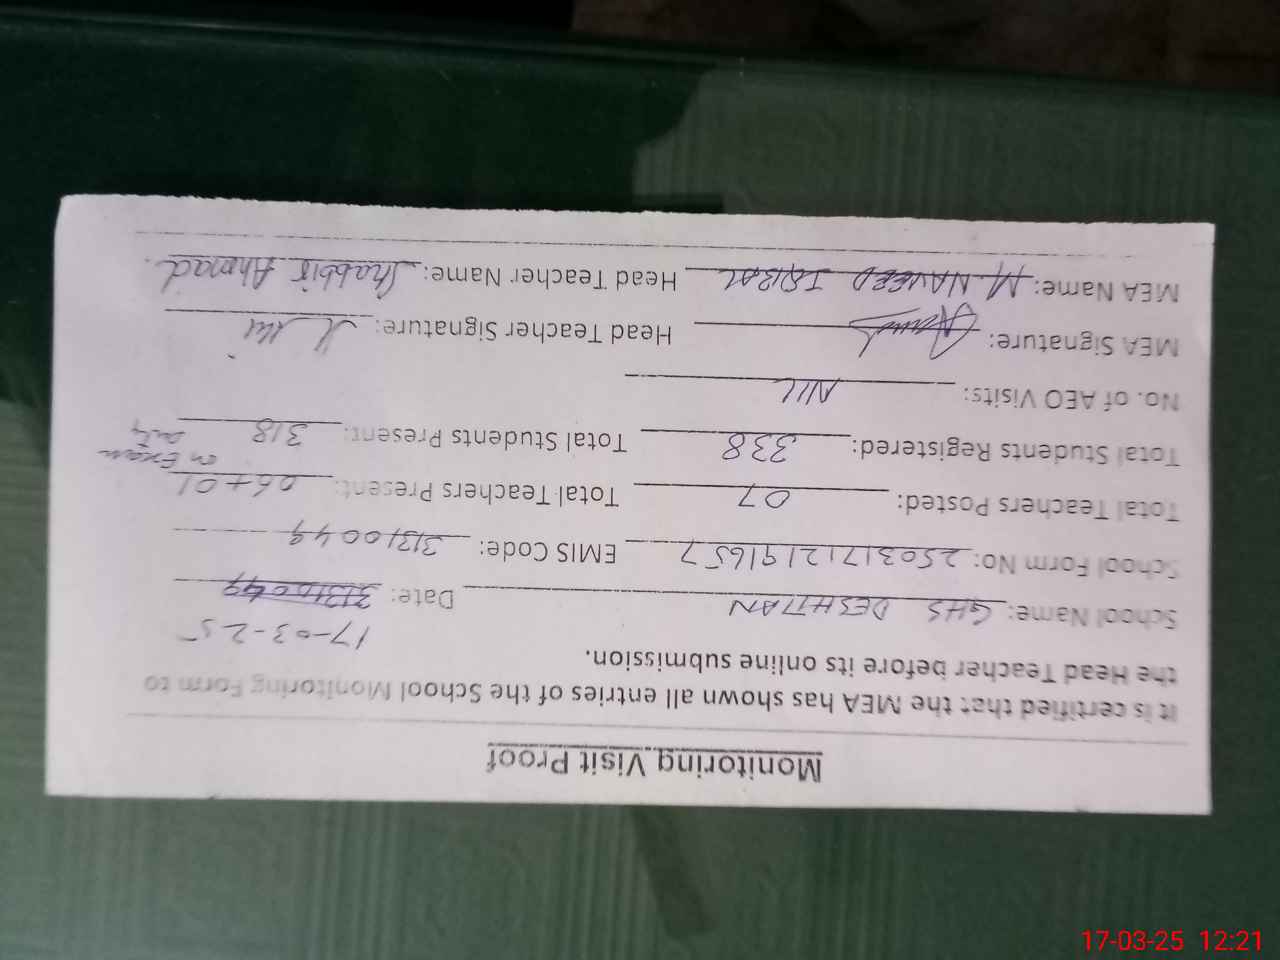 Monitoring Visit Proof
It is certified that the MEA has shown all entries of the School Monitoring Form to
the Head Teacher before its online submission.
17-03-25
School Name: GHS DESHTIAN Date: 31310049
School Form No: 25031712191657 EMIS Code: 31310049
Total Teachers Posted: 07 Total Teachers Present: 06+01 on Exam duty
Total Students Registered: 338 Total Students Present: 318
No. of AEO Visits: NIL
MEA Signature: Head Teacher Signature:
MEA Name: M. NAVEED IQBAL Head Teacher Name: Shabbir Ahmad.
17-03-25 12:21